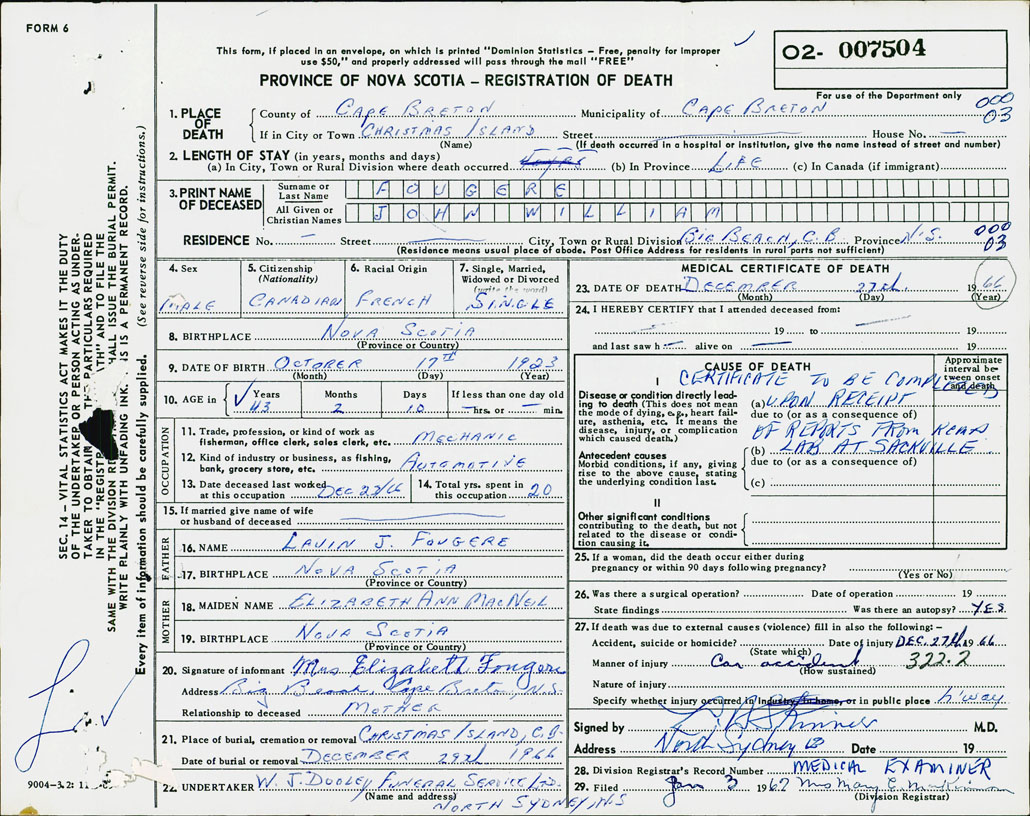 FORM 6
This form, if placed in an envelope, on which is printed "Dominion Statistics – Free, penalty for improper
use $50," and properly addressed will pass through the mail "FREE"
PROVINCE OF NOVA SCOTIA – REGISTRATION OF DEATH
O2- 007504
For use of the Department only
1. PLACE OF DEATH
County of CAPE BRETON Municipality of CAPE BRETON 000 03
If in City or Town CHRISTMAS ISLAND Street House No. —
(Name) (If death occurred in a hospital or institution, give the name instead of street and number)
2. LENGTH OF STAY (in years, months and days)
(a) In City, Town or Rural Division where death occurred (b) In Province LIFE (c) In Canada (if immigrant)
3. PRINT NAME OF DECEASED
Surname or Last Name FOUGERE
All Given or Christian Names JOHN WILLIAM
RESIDENCE No. — Street City, Town or Rural Division BIG BEACH, C.B. Province N.S. 000 03
(Residence means usual place of abode. Post Office Address for residents in rural parts not sufficient)
4. Sex MALE
5. Citizenship (Nationality) CANADIAN
6. Racial Origin FRENCH
7. Single, Married, Widowed or Divorced (write the word) SINGLE
8. BIRTHPLACE NOVA SCOTIA
(Province or Country)
9. DATE OF BIRTH OCTOBER 17th 1923
(Month) (Day) (Year)
10. AGE in Years 43 Months 2 Days 10 If less than one day old — hrs. or — min.
OCCUPATION
11. Trade, profession, or kind of work as
fisherman, office clerk, sales clerk, etc. MECHANIC
12. Kind of industry or business, as fishing,
bank, grocery store, etc. AUTOMOTIVE
13. Date deceased last worked
at this occupation DEC 23/66
14. Total yrs. spent in
this occupation 20
15. If married give name of wife
or husband of deceased
FATHER
16. NAME LAVIN J. FOUGERE
17. BIRTHPLACE NOVA SCOTIA
(Province or Country)
MOTHER
18. MAIDEN NAME ELIZABETH ANN MACNEIL
19. BIRTHPLACE NOVA SCOTIA
(Province or Country)
20. Signature of informant Mrs Elizabeth Fougere
Address Big Beach, Cape Breton, N.S.
Relationship to deceased MOTHER
21. Place of burial, cremation or removal CHRISTMAS ISLAND, C.B.
Date of burial or removal DECEMBER 29th 1966
22. UNDERTAKER W. J. DOOLEY FUNERAL SERVICE LTD.
(Name and address) NORTH SYDNEY, N.S
MEDICAL CERTIFICATE OF DEATH
23. DATE OF DEATH DECEMBER 27th. 1966
(Month) (Day) (Year)
24. I HEREBY CERTIFY that I attended deceased from:
19 to 19
and last saw h — alive on — 19
CAUSE OF DEATH
Approximate interval between onset and death
I
CERTIFICATE TO BE COMPLETED
Disease or condition directly leading to death (This does not mean
the mode of dying, e.g., heart failure, asthenia, etc. It means the
disease, injury, or complication
which caused death.)
(a) UPON RECEIPT
due to (or as a consequence of)
OF REPORTS FROM
(b) LAB AT SACKVILLE
due to (or as a consequence of)
(c)
Antecedent causes
Morbid conditions, if any, giving
rise to the above cause, stating
the underlying condition last.
II
Other significant conditions
contributing to the death, but not
related to the disease or condition causing it.
25. If a woman, did the death occur either during
pregnancy or within 90 days following pregnancy?
(Yes or No)
26. Was there a surgical operation? Date of operation 19
State findings Was there an autopsy? YES
27. If death was due to external causes (violence) fill in also the following: –
Accident, suicide or homicide? Date of injury DEC. 27th 1966
(State which)
Manner of injury Car accident 322.2
(How sustained)
Nature of injury
Specify whether injury occurred in industry, in home, or in public place h'way
Signed by M.D.
Address North Sydney Date 19
28. Division Registrar's Record Number MEDICAL EXAMINER
29. Filed Jan 3 1967 Mrs Mary E.
(Division Registrar)
SEC. 14 – VITAL STATISTICS ACT MAKES IT THE DUTY
OF THE UNDERTAKER OR PERSON ACTING AS UNDER-
TAKER TO OBTAIN PARTICULARS REQUIRED
IN THE "REGISTR TH" AND TO FILE THE
SAME WITH THE DIVISION HALL ISSUE THE BURIAL PERMIT.
WRITE PLAINLY WITH UNFADING INK. IS IS A PERMANENT RECORD.
Every item of information should be carefully supplied. (See reverse side for instructions.)
9004-3.2: